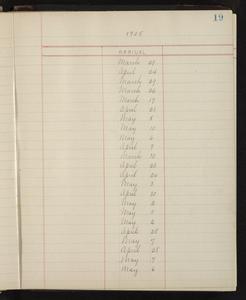 19
1925
ARRIVAL
March 29
April 24
March 29
March 26
March 19
April 23
May 8
May 10
May 4
April 9
March 30
April 23
April 24
May 3
April 30
May 2
May 1
May 2
April 28
May 7
April 28
May 17
May 6